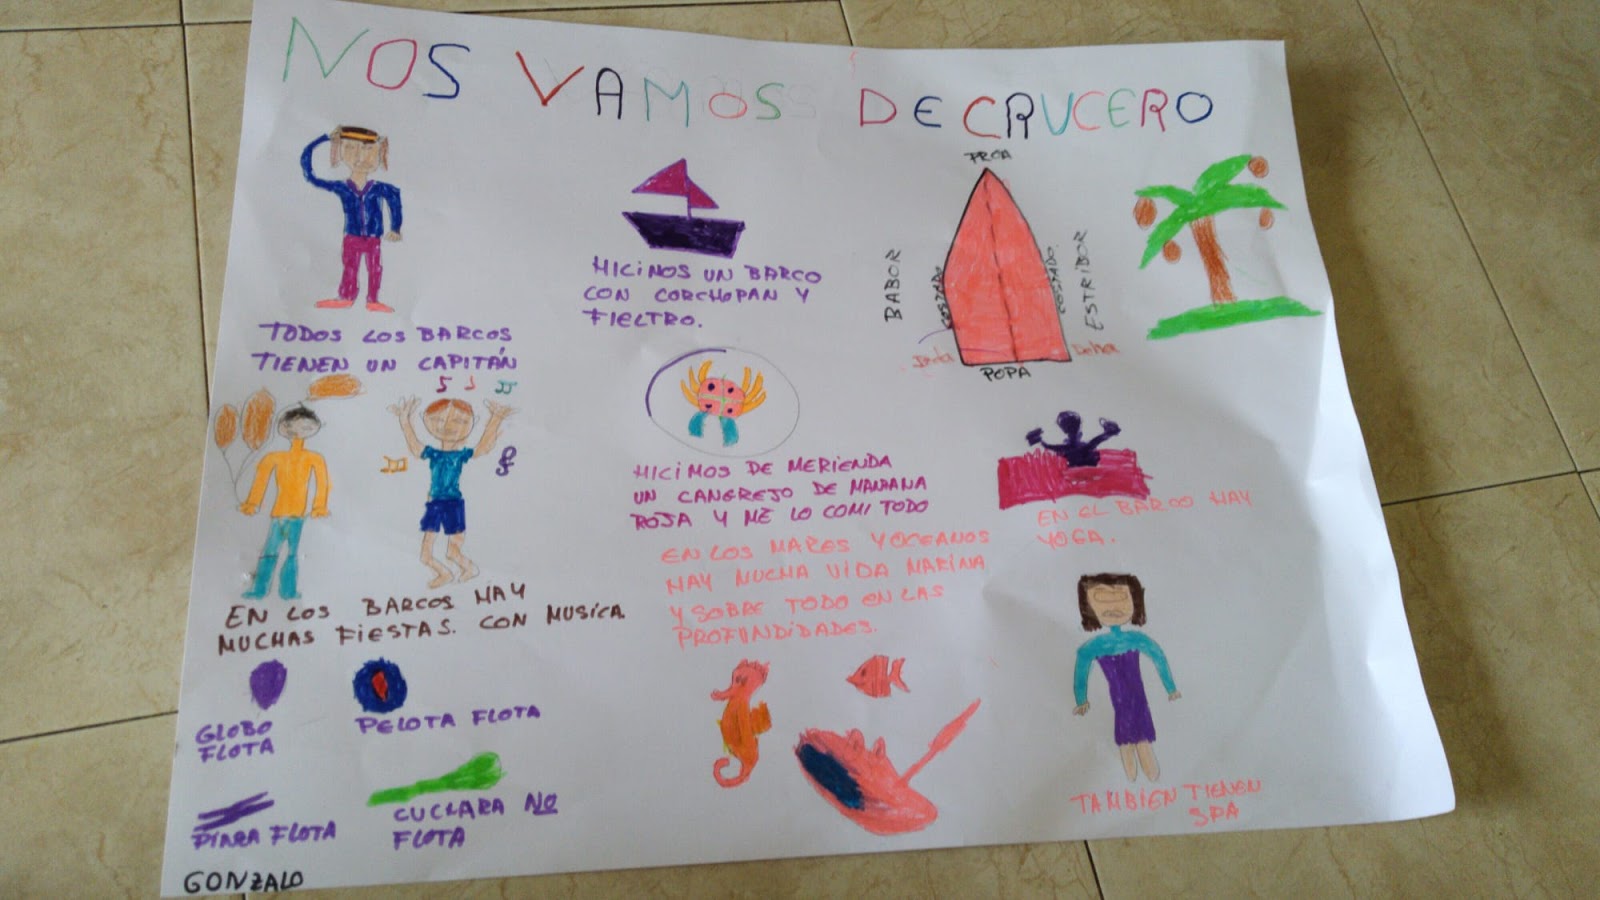 NOS VAMOS DE CRUCERO
TODOS LOS BARCOS
TIENEN UN CAPITÁN
HICINOS UN BARCO
CON CORCHOPAN Y
FIELTRO.
PROA
BABOR
COSTADO
COSTADO.
ESTRIBOR
POPA
HICIMOS DE MERIENDA
UN CANGREJO DE MANZANA
ROJA Y ME LO COMI TODO
EN EL BARCO HAY
YOGA.
EN LOS MARES Y OCEANOS
HAY MUCHA VIDA MARINA
Y SOBRE TODO EN LAS
PROFUNDIDADES.
EN LOS BARCOS HAY
MUCHAS FIESTAS. CON MUSICA
GLOBO
FLOTA
PELOTA FLOTA
PINZA FLOTA
CUCLARA NO
FLOTA
TAMBIEN TIENEN
SPA
GONZALO